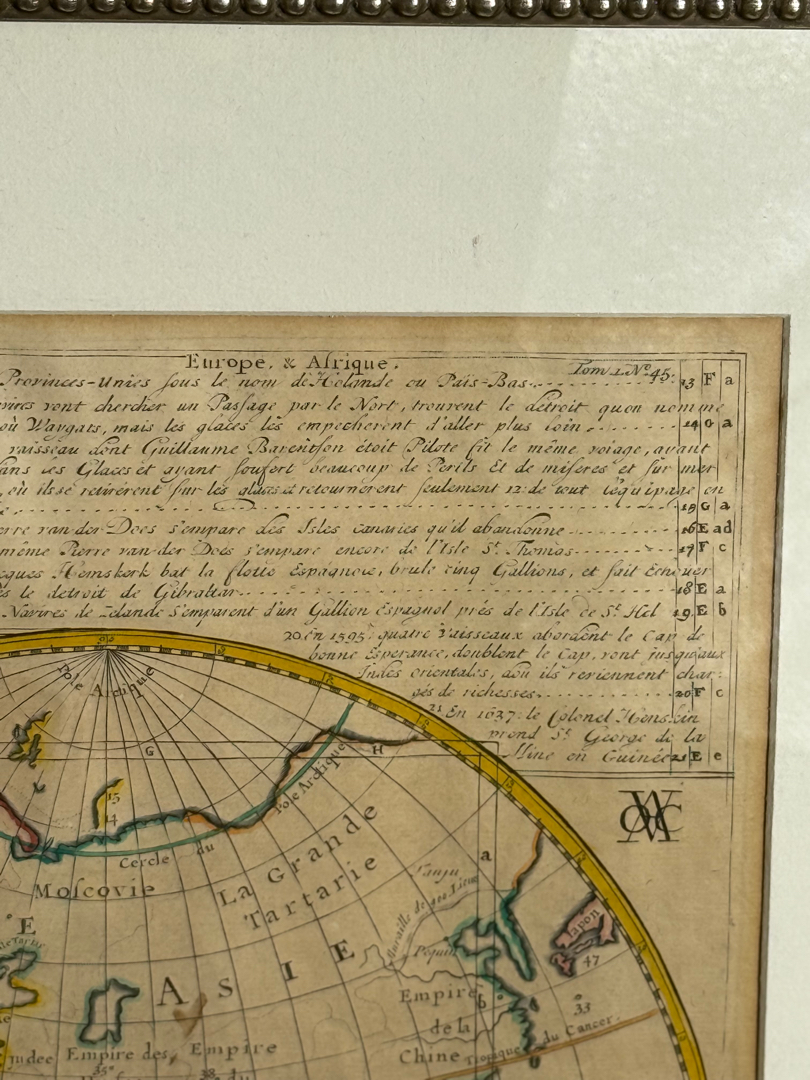 Europe, & Afrique.
Tom. I. N.º 45.
Provinces-Unies sous le nom de Holande ou Païs-Bas 13 F a
vont chercher un Passage par le Nort, trouvent le detroit quon nomme
ou Waygats, mais les glaces les empecherent d'aller plus loin 14 G a
vaisseau dont Guillaume Barentson étoit Pilote fit le même voiage, ayant
dans les Glaces et ayant soufert beaucoup de Perils et de miseres et sur mer
, où ils se retirérent sur les glaces et retournerent seulement 12 de tout l'equipage en
15 G a
van-der Does s'empare des Isles canaries qu'il abandonne 16 E ad
même Pierre van-der Does s'empare encore de l'Isle St. Thomas 17 F c
Hemskerk bat la flotte Espagnole, brule cinq Gallions, et fait Echouer
le detroit de Gibraltar 18 E a
Navires de Zelande s'emparent d'un Gallion Espagnol prés de l'Isle de St. Hel 19 E b
20 En 1595 quatre Vaisseaux abordent le Cap de
bonne Esperance, doublent le Cap, vont jusqu'aux
Indes orientales, d'ou ils reviennent char-
gés de richesses 20 F c
21 En 1637 le Colonel
prend St. George de la
Mine en Guinée 21 E e
Pole Arctique
G
H
Pole Arctique
15
14
Cercle du
Moscovie
La Grande
Tartarie
a
Muraille de 400 Lieues
E
Japon
47
Pequin
ASIE
Empire
b
33
de la
Chine
Tropique du Cancer
Judée
Empire des
Empire
35
38
du